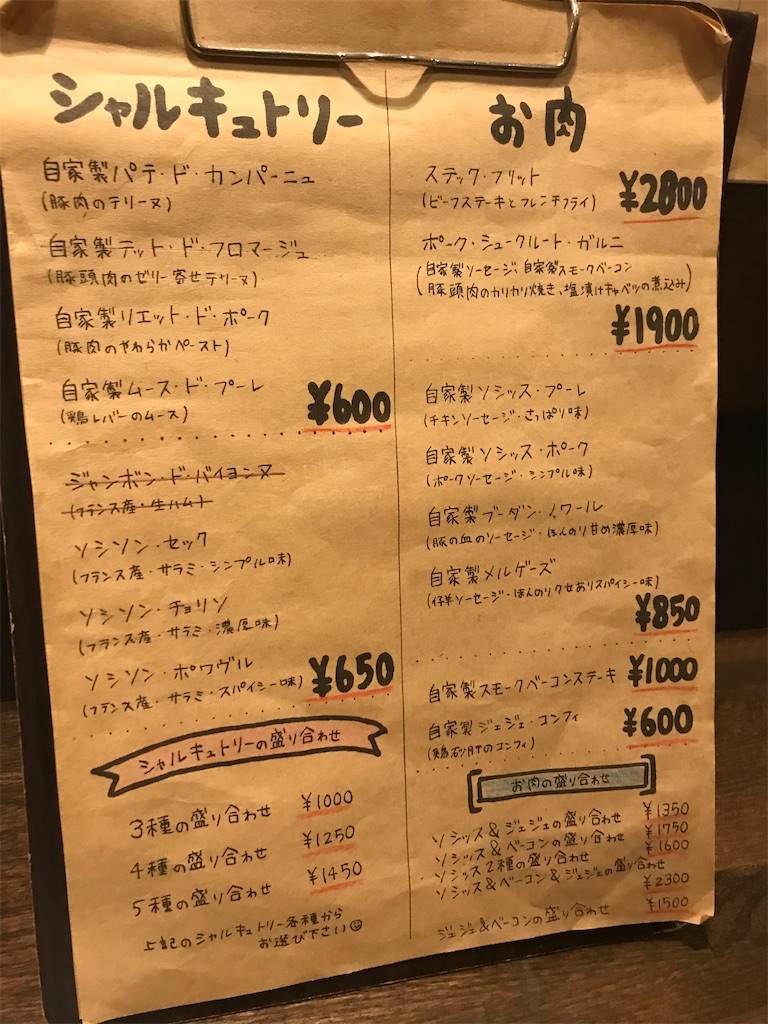 シャルキュトリー
自家製パテ・ド・カンパーニュ
(豚肉のテリーヌ)
自家製テット・ド・フロマージュ
(豚頭肉のゼリー寄せテリーヌ)
自家製リエット・ド・ポーク
(豚肉のやわらかペースト)
自家製ムース・ド・プーレ
(鶏レバーのムース)
¥600
ジャンボン・ド・バイヨンヌ
(フランス産・生ハム)
ソシソン・セック
(フランス産・サラミ・シンプル味)
ソシソン・チョリソ
(フランス産・サラミ・濃厚味)
ソシソン・ポワヴル
(フランス産・サラミ・スパイシー味)
¥650
シャルキュトリーの盛り合わせ
3種の盛り合わせ ¥1000
4種の盛り合わせ ¥1250
5種の盛り合わせ ¥1450
上記のシャルキュトリー各種から
お選び下さい☺
お肉
ステック・フリット
(ビーフステーキとフレンチフライ)
¥2800
ポーク・シュークルート・ガルニ
(自家製ソーセージ、自家製スモークベーコン
豚頭肉のカリカリ焼き、塩漬けキャベツの煮込み)
¥1900
自家製ソシッス・プーレ
(チキンソーセージ・さっぱり味)
自家製ソシッス・ポーク
(ポークソーセージ・シンプル味)
自家製ブーダン・ノワール
(豚の血のソーセージ・ほんのり甘め濃厚味)
自家製メルゲーズ
(仔羊ソーセージ・ほんのりクセありスパイシー味)
¥850
自家製スモークベーコンステーキ ¥1000
自家製ジェジェ・コンフィ ¥600
(鶏砂肝のコンフィ)
お肉の盛り合わせ
ソシッス&ジェジェの盛り合わせ ¥1350
ソシッス&ベーコンの盛り合わせ ¥1750
ソシッス2種の盛り合わせ ¥1600
ソシッス&ベーコン&ジェジェの盛り合わせ
¥2300
ジェジェ&ベーコンの盛り合わせ ¥1500